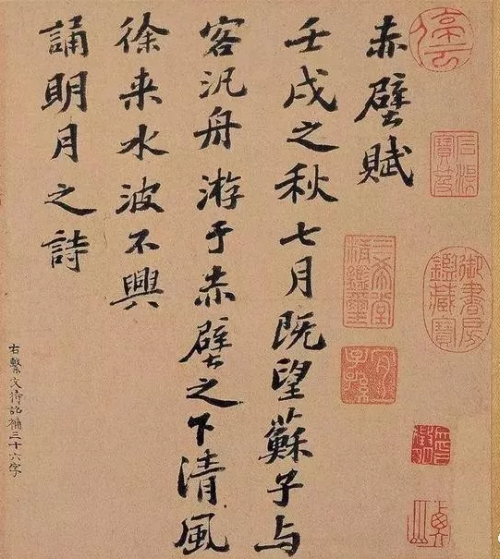 停云
御書房鑑藏寶
三希堂精鑑璽
宜子孫
赤壁賦
壬戌之秋七月既望蘇子与
客汎舟游于赤壁之下清風
徐来水波不興
誦明月之詩
右繫文待詔補三十六字